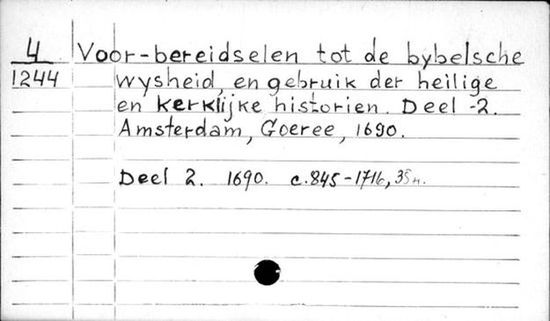 4 Voor-bereidselen tot de bybelsche
1244 wysheid, en gebruik der heilige
en kerklijke historien. Deel -2.
Amsterdam, Goeree, 1690.
Deel 2. 1690. c.845-1716, 35 н.